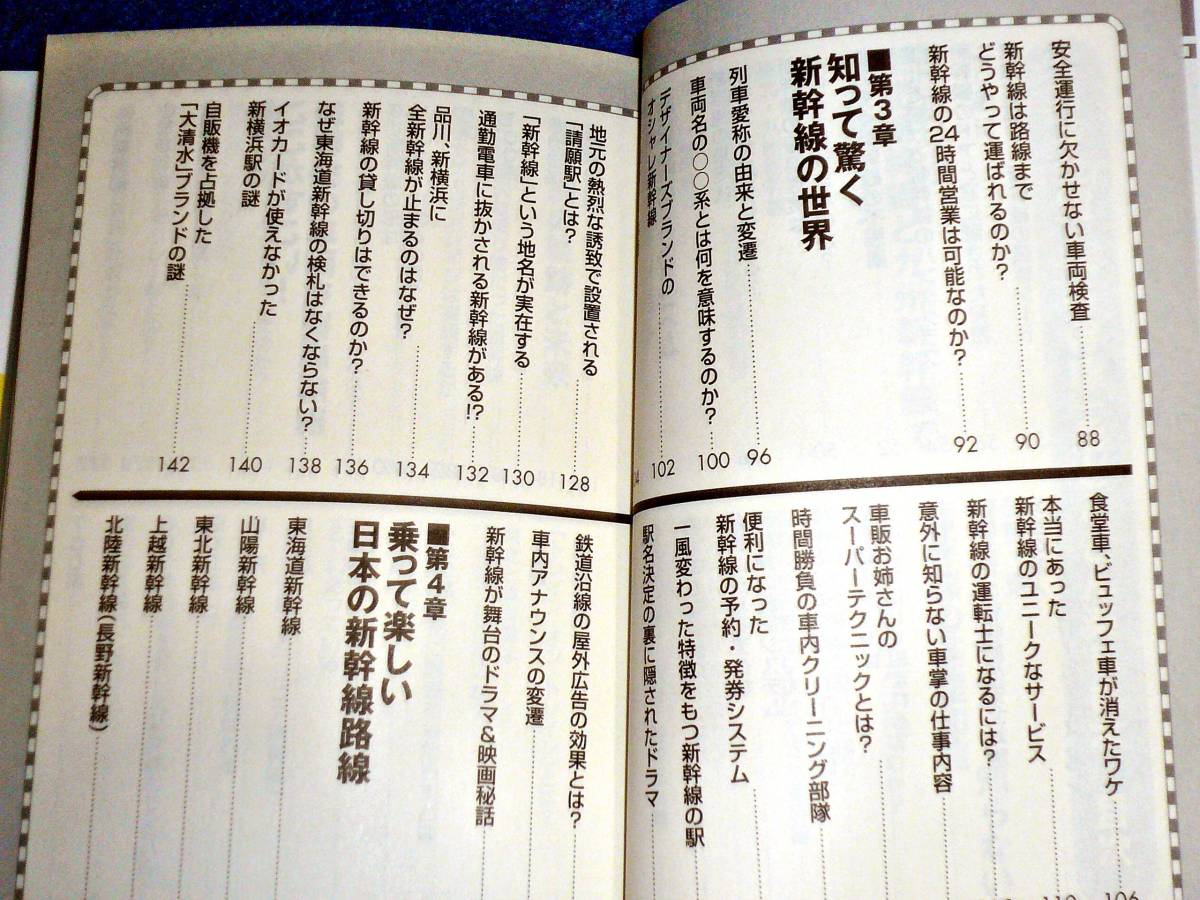 安全運行に欠かせない車両検査……88
新幹線は路線まで
どうやって運ばれるのか?……90
新幹線の24時間営業は可能なのか?……92
■第3章
知って驚く
新幹線の世界
列車愛称の由来と変遷……96
車両名の○○系とは何を意味するのか?……100
デザイナーズブランドの
オシャレ新幹線……102
食堂車、ビュッフェ車が消えたワケ……106
本当にあった
新幹線のユニークなサービス
新幹線の運転士になるには?
意外に知らない車掌の仕事内容
車販お姉さんの
スーパーテクニックとは?
時間勝負の車内クリーニング部隊
便利になった
新幹線の予約・発券システム
一風変わった特徴をもつ新幹線の駅
駅名決定の裏に隠されたドラマ
地元の熱烈な誘致で設置される
「請願駅」とは?……128
「新幹線」という地名が実在する……130
通勤電車に抜かされる新幹線がある!?……132
品川、新横浜に
全新幹線が止まるのはなぜ?……134
新幹線の貸し切りはできるのか?……136
なぜ東海道新幹線の検札はなくならない?……138
イオカードが使えなかった
新横浜駅の謎……140
自販機を占拠した
「大清水」ブランドの謎……142
鉄道沿線の屋外広告の効果とは?
車内アナウンスの変遷
新幹線が舞台のドラマ&映画秘話
■第4章
乗って楽しい
日本の新幹線路線
東海道新幹線
山陽新幹線
東北新幹線
上越新幹線
北陸新幹線(長野新幹線)